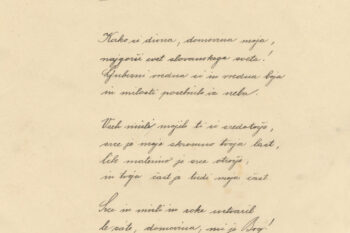 Kako si divna, domovina moja,
najgorši svet slovanskega sveta!
Ljubezni vredna si in vredna boja
in milosti posebnih iz neba.
Vseh misli mojih ti si središče,
srce je moje skromno tvoja last,
kek materino je srce otroje,
in tvoja čast je tudi moja čast.
Srce in misli in roke ustvaril
le zate, domovina, mi je Bog!